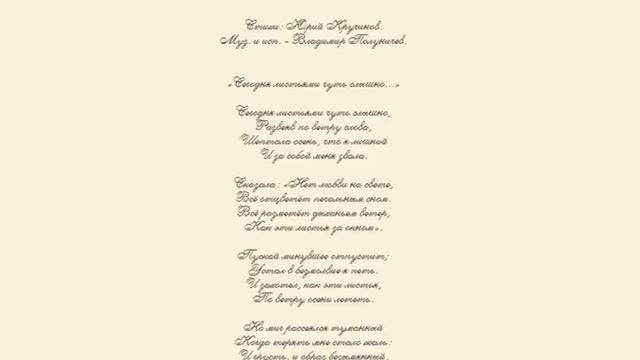 Стихи: Юрий Кручинов.
Муз. и исп. - Владимир Полуничев.
«Сегодня листьями чуть слышно...»
Сегодня листьями чуть слышно,
Развеяв по ветру слова,
Шептала осень, что я лишний
И за собой меня звала.
Сказала: «Нет любви на свете,
Всё отцветёт печальным сном.
Всё разметёт дыханьем ветер,
Как эти листья за окном».
Пускай минувшее отпустит;
Устал в безмолвие я петь.
И захотел, как эти листья,
По ветру осени лететь.
Но миг рассеялся туманный
Когда терять мне стало жаль:
И грусть, и образ безымянный,